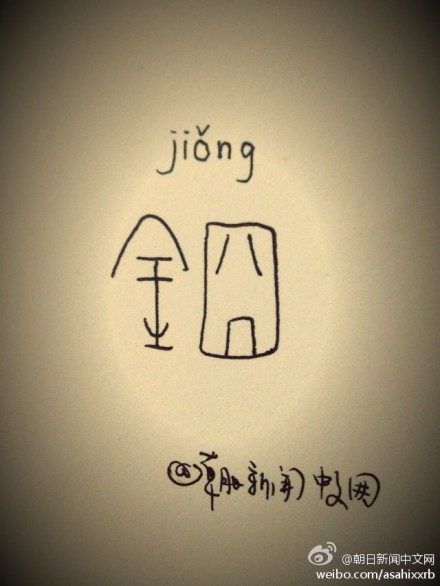 jiǒng
金囧
@朝日新闻中文网
@朝日新闻中文网
weibo.com/asahixxrb